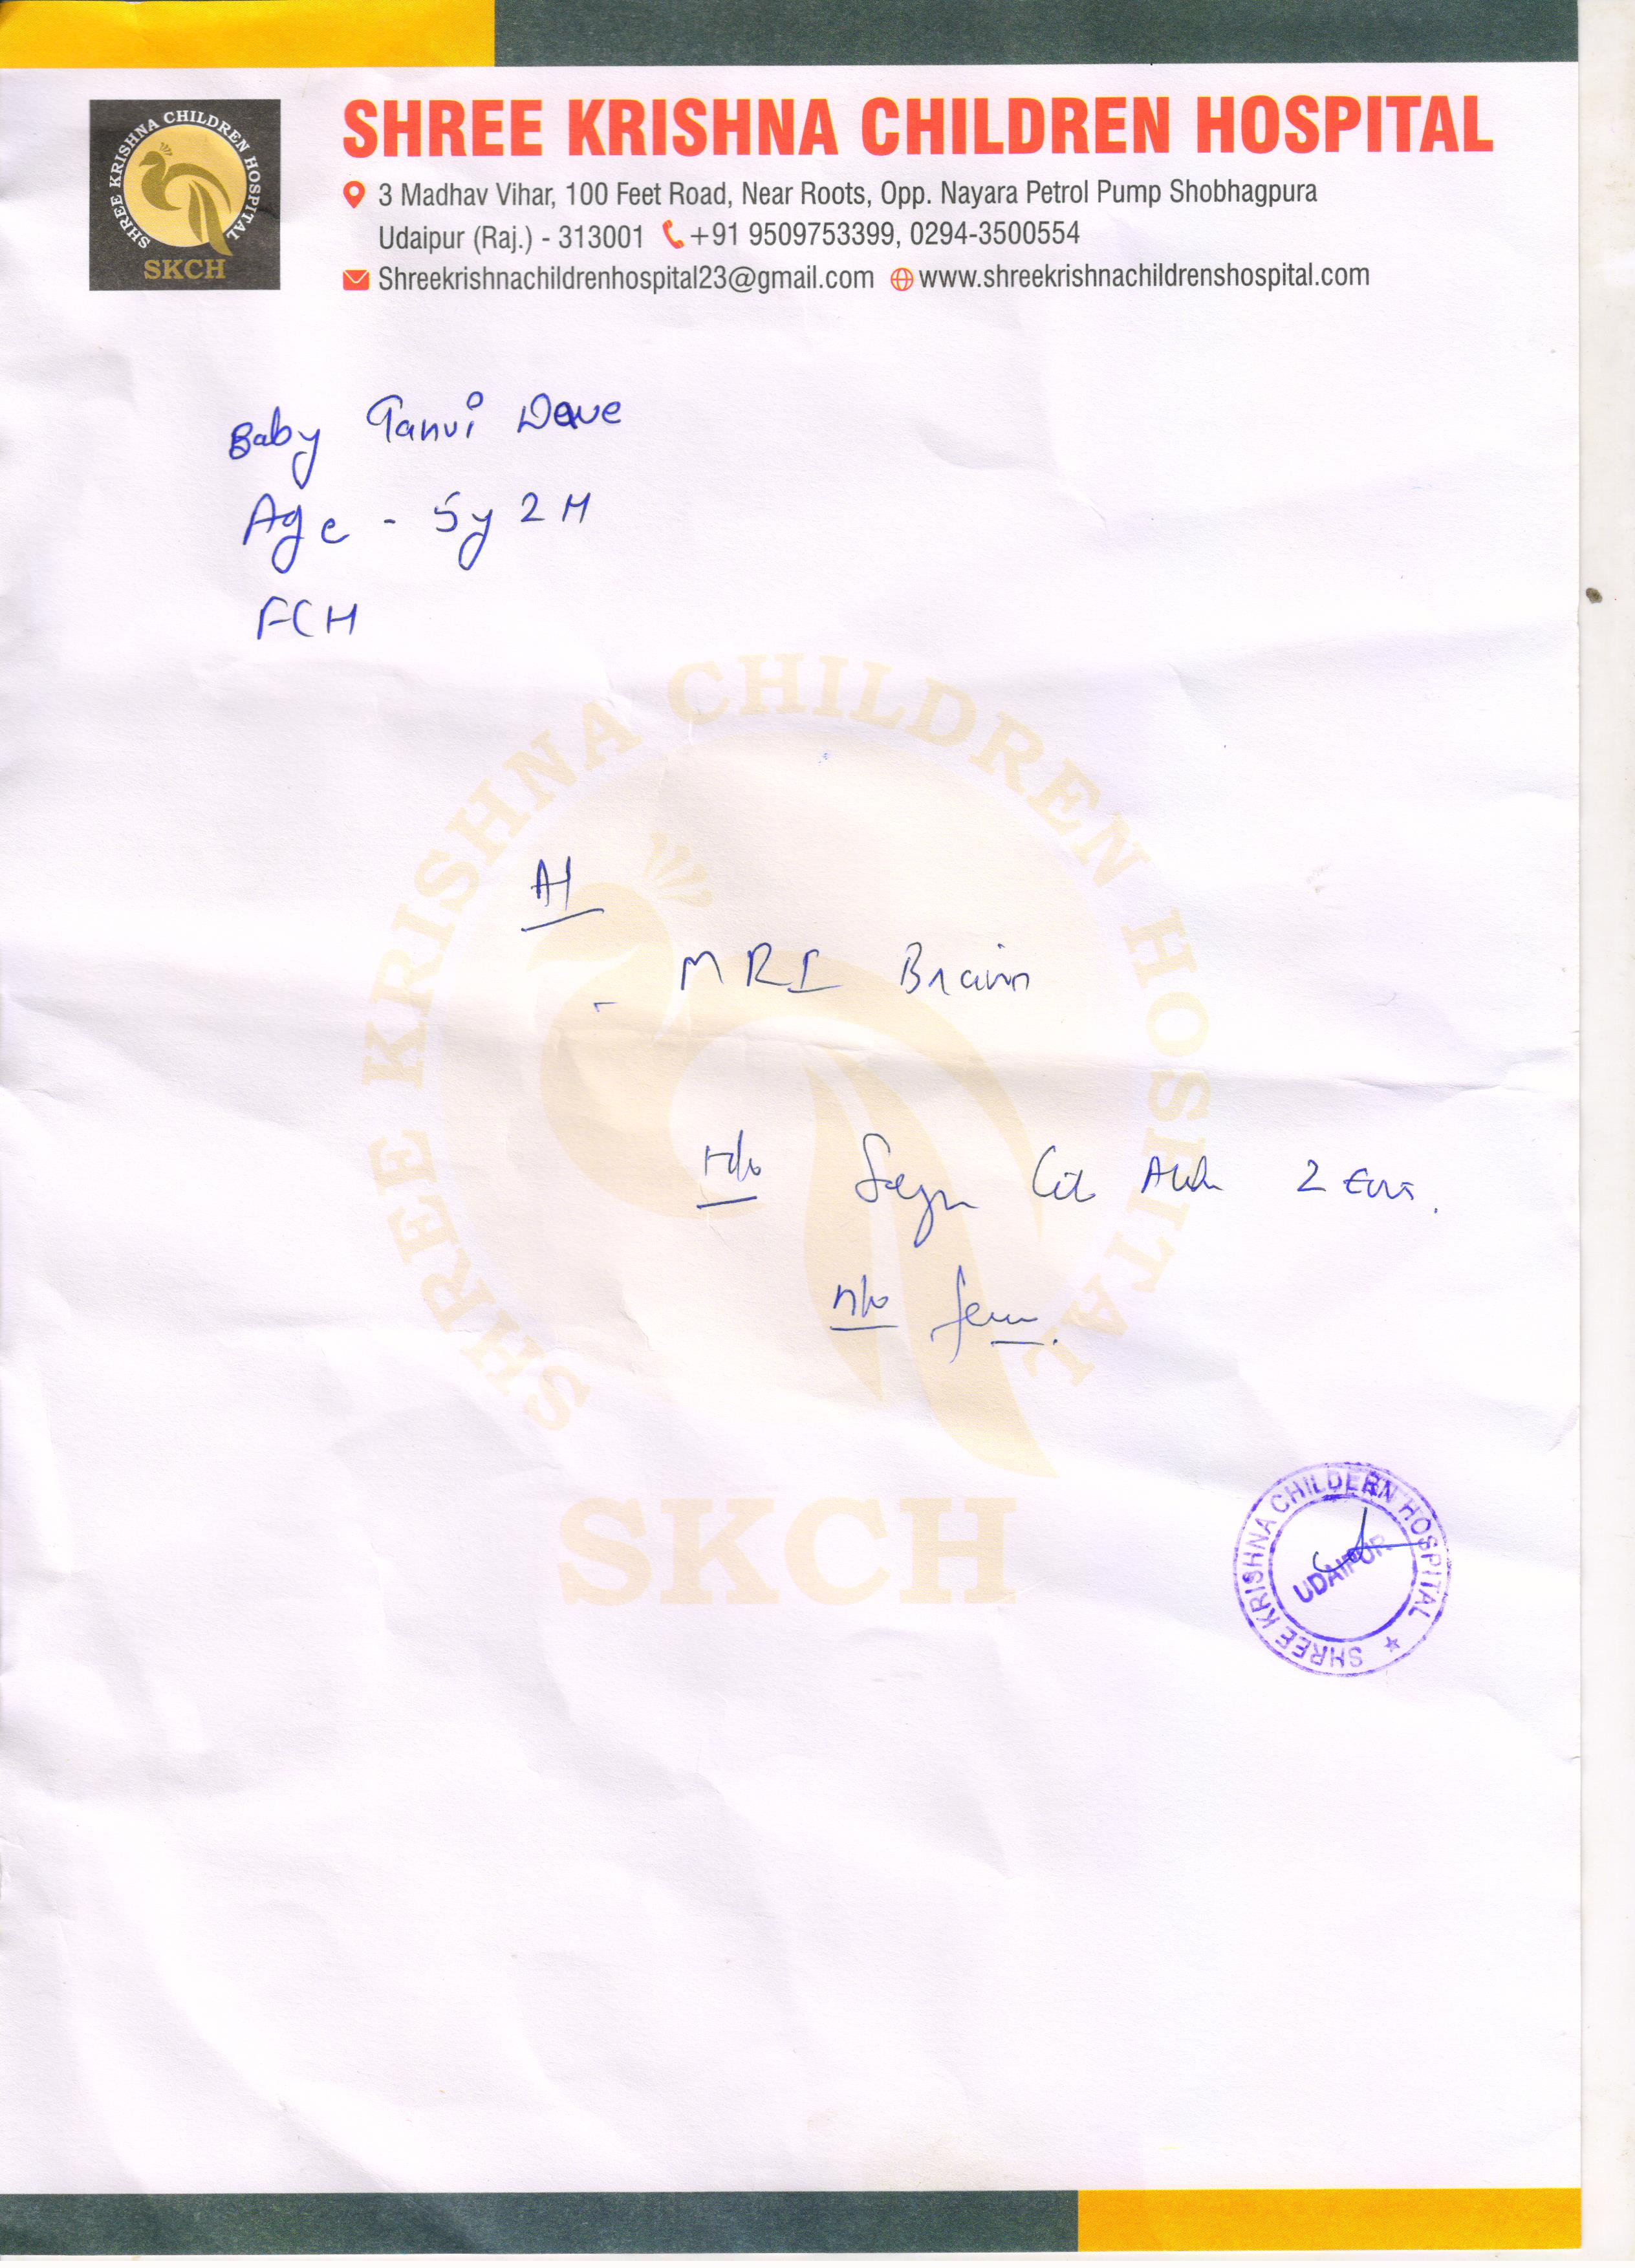 SHREE KRISHNA CHILDREN HOSPITAL
SHREE KRISHNA CHILDREN HOSPITAL
SKCH
3 Madhav Vihar, 100 Feet Road, Near Roots, Opp. Nayara Petrol Pump Shobhagpura
Udaipur (Raj.) - 313001 +91 9509753399, 0294-3500554
Shreekrishnachildrenhospital23@gmail.com www.shreekrishnachildrenshospital.com
Baby Tanvi Dave
Age - 5y 2M
FCH
MRI Brain
H/o 2
H/o
SHREE KRISHNA CHILDREN HOSPITAL
SKCH
SHREE KRISHNA CHILDERN HOSPITAL
UDAIPUR